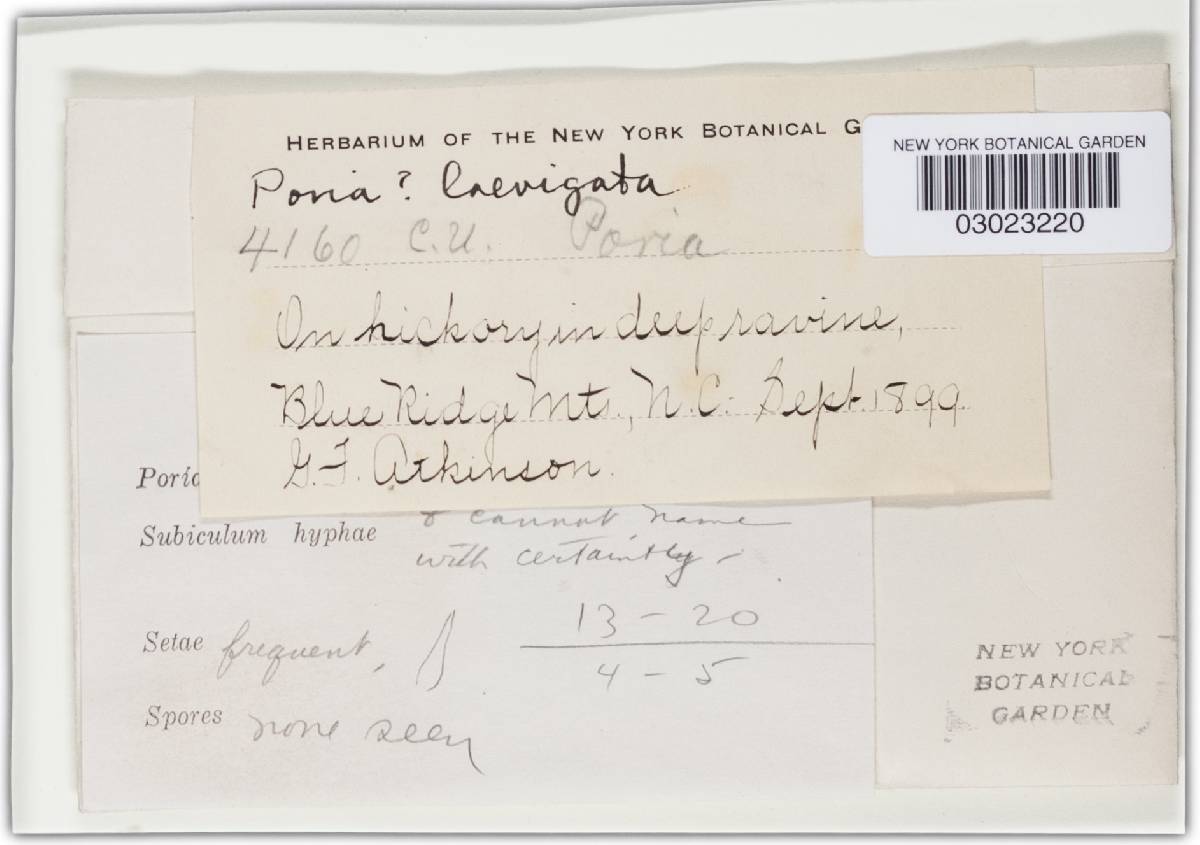 HERBARIUM OF THE NEW YORK BOTANICAL G
NEW YORK BOTANICAL GARDEN
03023220
Poria ? laevigata
4160 C.U. Poria
On hickory in deep ravine,
Blue Ridge Mts., N.C. Sept. 1899.
G.F. Atkinson.
Poria
Subiculum hyphae
& cannot name
with certaintly -
Setae frequent,
13 - 20
4 - 5
Spores none seen
NEW YORK
BOTANICAL
GARDEN